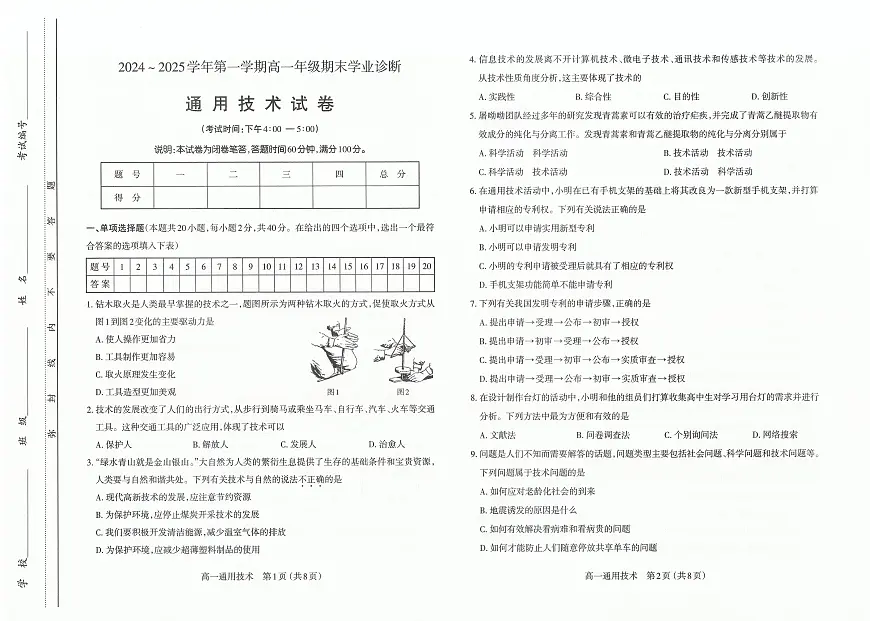 考试编号
姓 名
班 级
学 校
弥 封 线 内 不 要 答 题
2024~2025学年第一学期高一年级期末学业诊断
通用技术试卷
(考试时间:下午4:00 —5:00)
说明:本试卷为闭卷笔答,答题时间60分钟,满分100分。
题 号 一 二 三 四 总 分
得 分
一、单项选择题(本题共20小题,每小题2分,共40分。在给出的四个选项中,选出一个最符
合答案的选项填入下表)
题号 1 2 3 4 5 6 7 8 9 10 11 12 13 14 15 16 17 18 19 20
答案
1. 钻木取火是人类最早掌握的技术之一,题图所示为两种钻木取火的方式,促使取火方式从
图1到图2变化的主要驱动力是
A. 使人操作更加省力
B. 工具制作更加容易
C. 取火原理发生变化
D. 工具造型更加美观
图1 图2
2. 技术的发展改变了人们的出行方式,从步行到骑马或乘坐马车、自行车,汽车、火车等交通
工具。这种交通工具的广泛应用,体现了技术可以
A. 保护人 B. 解放人 C. 发展人 D. 治愈人
3. “绿水青山就是金山银山。”大自然为人类的繁衍生息提供了生存的基础条件和宝贵资源,
人类要与自然和谐共处。下列有关技术与自然的说法不正确的是
A. 现代高新技术的发展,应注意节约资源
B. 为保护环境,应停止煤炭开采技术的发展
C. 我们要积极开发清洁能源,减少温室气体的排放
D. 为保护环境,应减少超薄塑料制品的使用
高一通用技术 第1页(共8页)
4. 信息技术的发展离不开计算机技术、微电子技术、通讯技术和传感技术等技术的发展。
从技术性质角度分析,这主要体现了技术的
A. 实践性 B. 综合性 C. 目的性 D. 创新性
5. 屠呦呦团队经过多年的研究发现青蒿素可以有效的治疗疟疾,并完成了青蒿乙醚提取物有
效成分的纯化与分离工作。发现青蒿素和青蒿乙醚提取物的纯化与分离分别属于
A. 科学活动 科学活动 B. 技术活动 技术活动
C. 科学活动 技术活动 D. 技术活动 科学活动
6. 在通用技术活动中,小明在已有手机支架的基础上将其改良为一款新型手机支架,并打算
申请相应的专利权。下列有关说法正确的是
A. 小明可以申请实用新型专利
B. 小明可以申请发明专利
C. 小明的专利申请被受理后就具有了相应的专利权
D. 手机支架功能简单不能申请专利
7. 下列有关我国发明专利的申请步骤,正确的是
A. 提出申请→受理→公布→初审→授权
B. 提出申请→初审→受理→公布→授权
C. 提出申请→受理→初审→公布→实质审查→授权
D. 提出申请→受理→公布→初审→实质审查→授权
8. 在设计制作台灯的活动中,小明和他的组员们打算收集高中生对学习用台灯的需求并进行
分析。下列方法中最为方便和有效的是
A. 文献法 B. 问卷调查法 C. 个别询问法 D. 网络搜索
9. 问题是人们不知而需要解答的话题,问题类型主要包括社会问题、科学问题和技术问题等。
下列问题属于技术问题的是
A. 如何应对老龄化社会的到来
B. 地震诱发的原因是什么
C. 如何有效解决看病难和看病贵的问题
D. 如何才能防止人们随意停放共享单车的问题
高一通用技术 第2页(共8页)